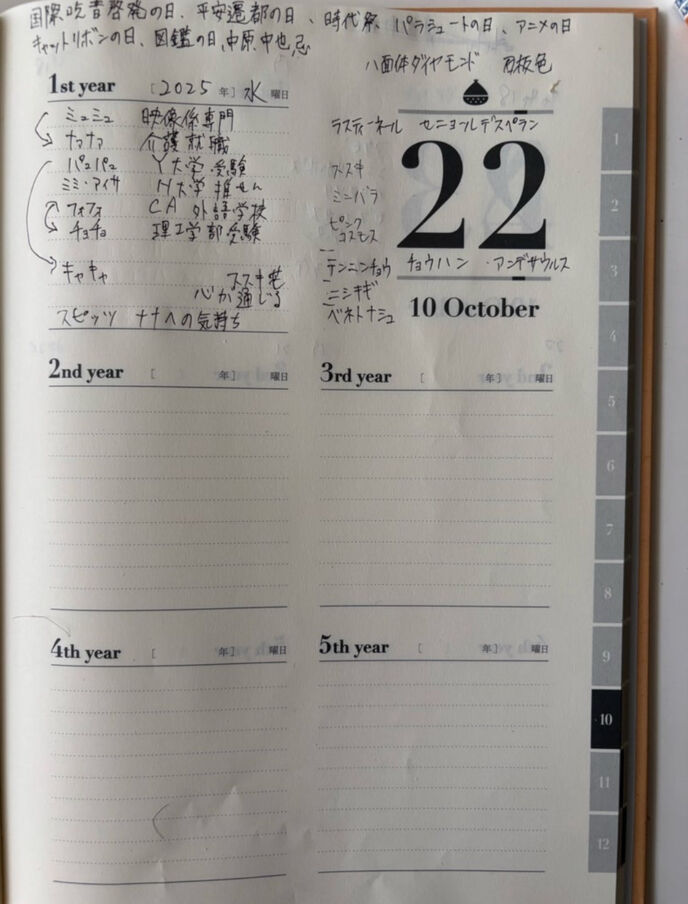 国際吃音啓発の日、平安遷都の日、時代祭 パラシュートの日、アニメの日
キャットリボンの日、図鑑の日、中原中也忌
八面体ダイヤモンド 色
1st year [2025年] 水 曜日
ミュミュ 映像係専門
ナァナァ 介護就職
パュパュ Y大学受験
ミミ・アイサ N大学推せん
フォフォ CA 外語学校
チョチョ 理工学部受験
キャキャ ススキ
心が通じる
スピッツ ナナへの気持ち
ラスティーネール セニョールデスペラン
ススキ
ミニバラ
ピンク
コスモス
テンニンチョウ
チョウハン ・アンデサウルス
ニシキギ
ベネトナシュ
22
10 October
2nd year [ 年] 曜日
3rd year [ 年] 曜日
4th year [ 年] 曜日
5th year [ 年] 曜日
1
2
3
4
5
6
7
8
9
10
11
12